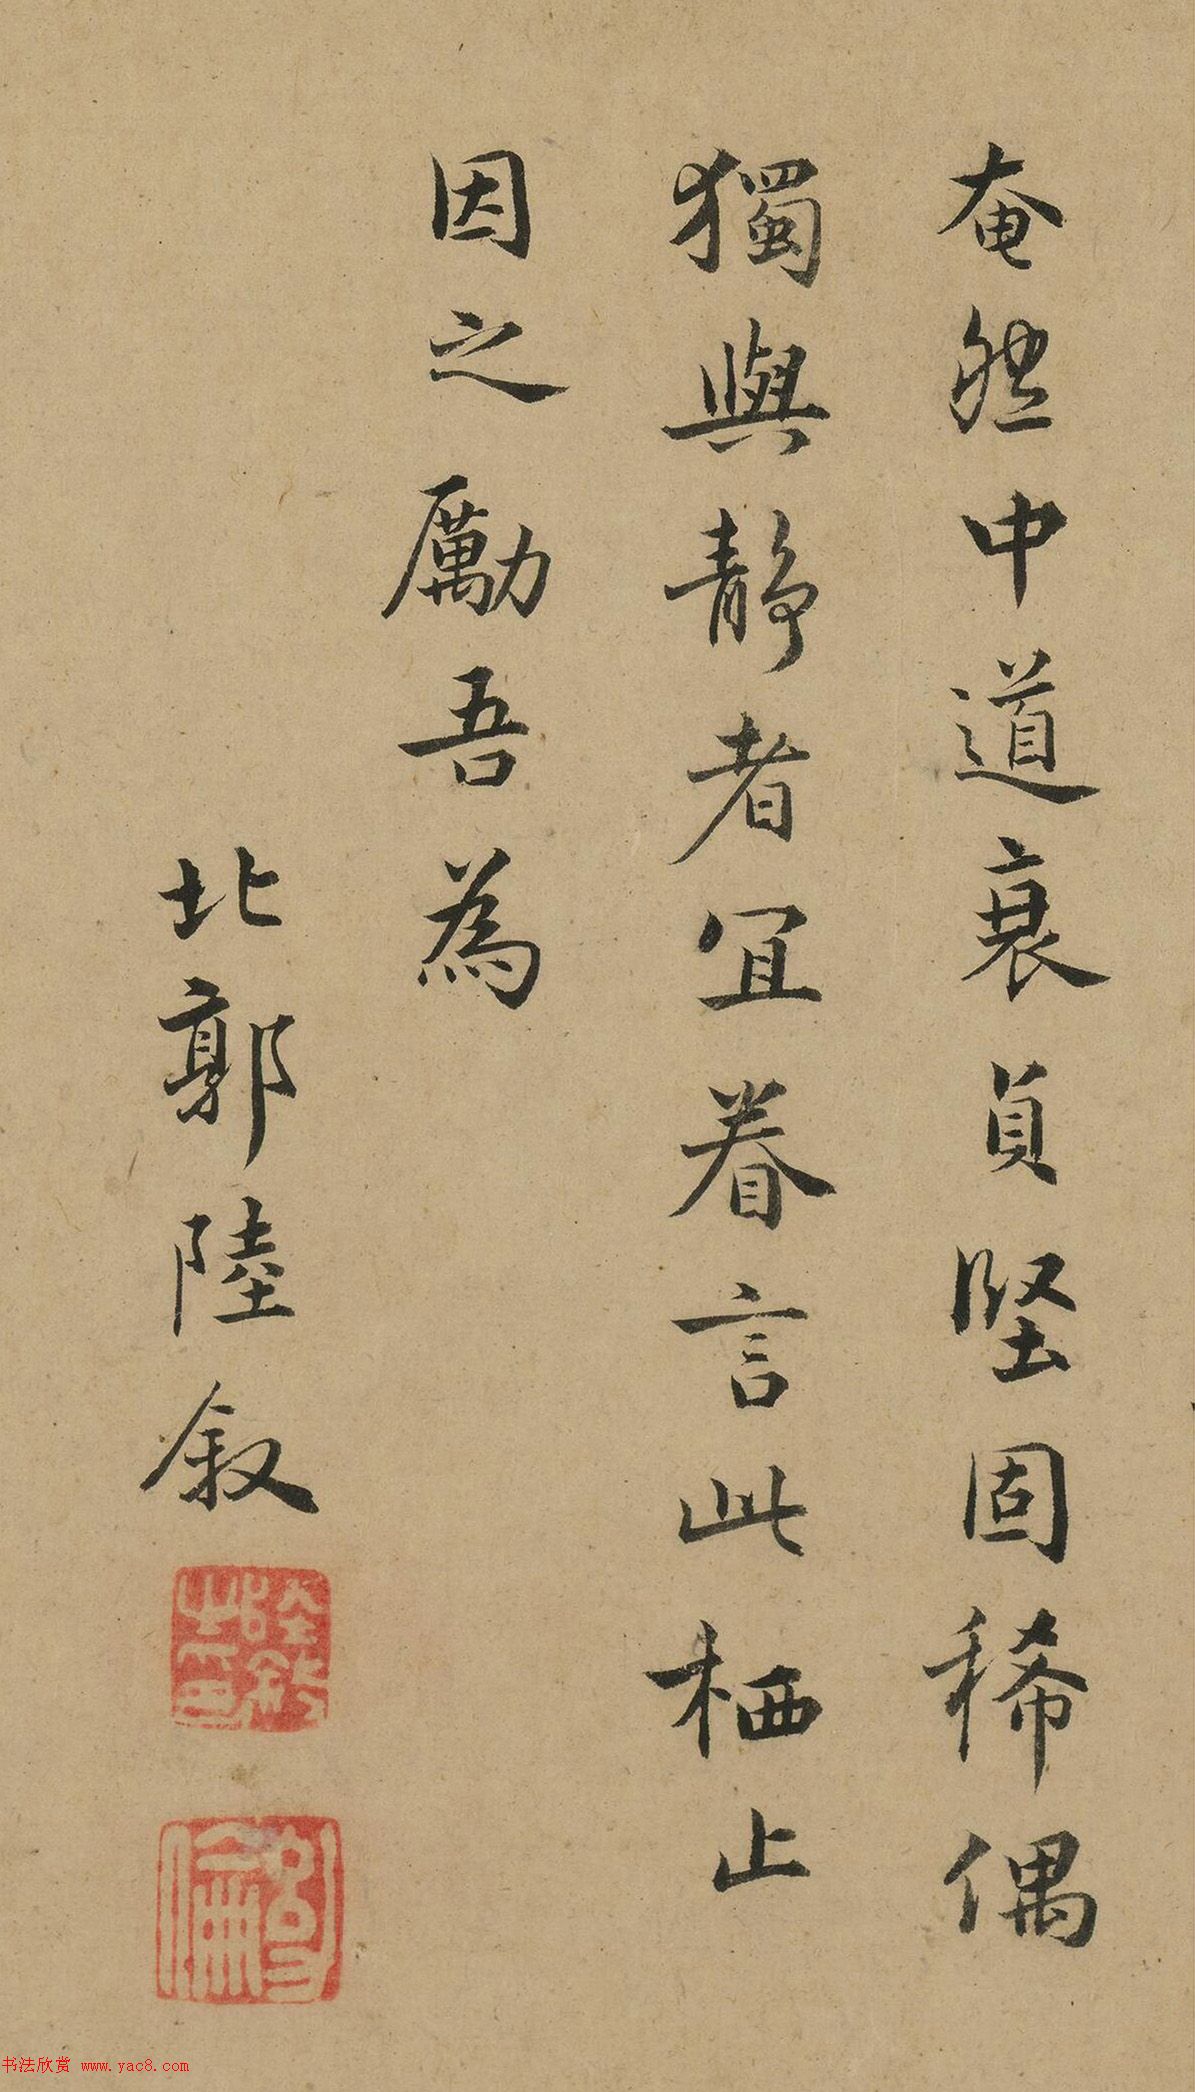 奄然中道衰貞堅固稀偶
獨與静者宜眷言此栖止
因之勵吾為
北郭陸叙
陸叙之印
书法欣赏 www.yac8.com